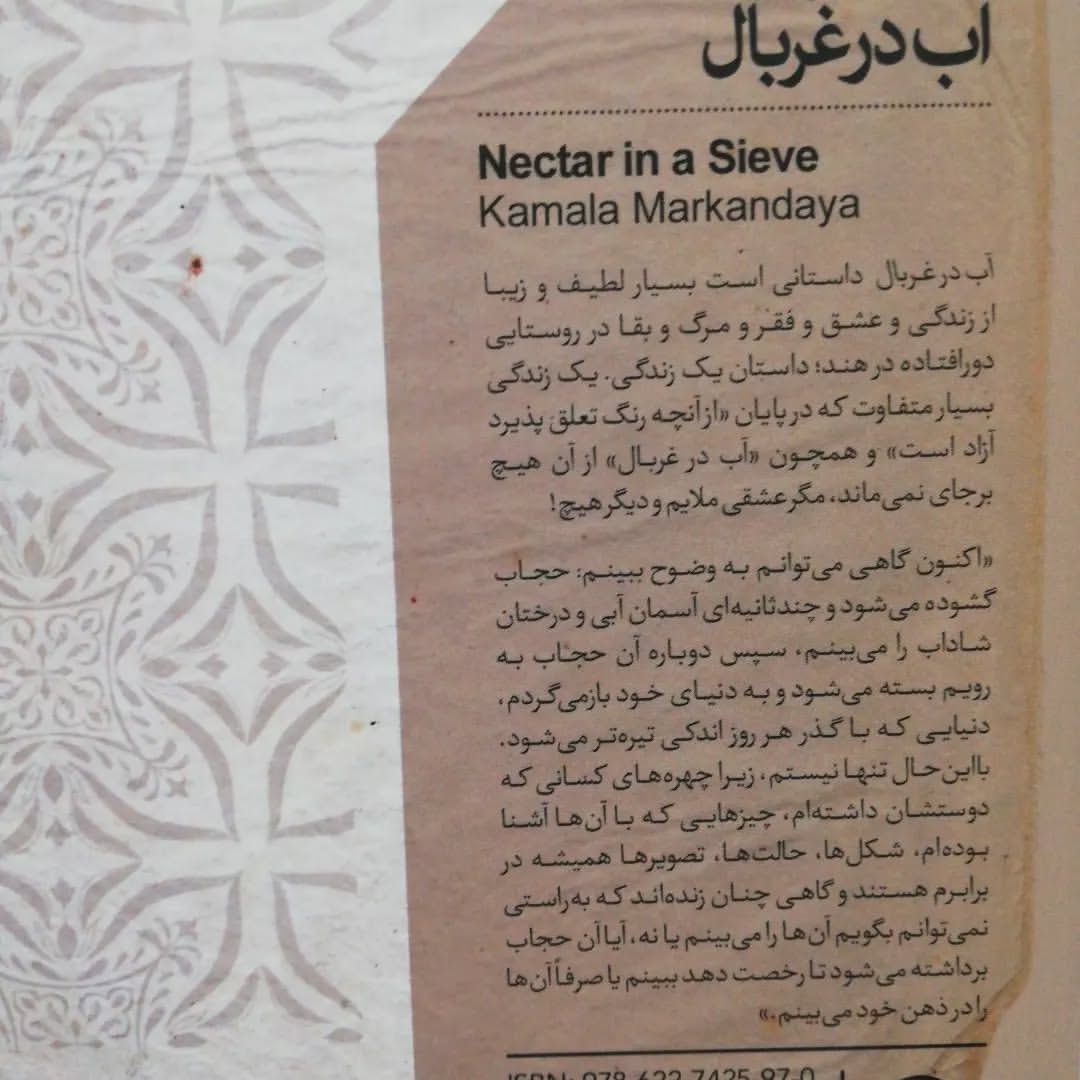 آب در غربال
Nectar in a Sieve
Kamala Markandaya
آب در غربال داستانی است بسیار لطیف و زیبا
از زندگی و عشق و فقر و مرگ و بقا در روستایی
دورافتاده در هند؛ داستان یک زندگی. یک زندگی
بسیار متفاوت که در پایان «از آنچه رنگ تعلق پذیرد
آزاد است» و همچون «آب در غربال» از آن هیچ
برجای نمی‌ماند، مگر عشقی ملایم و دیگر هیچ!
«اکنون گاهی می‌توانم به وضوح ببینم: حجاب
گشوده می‌شود و چند ثانیه‌ای آسمان آبی و درختان
شاداب را می‌بینم، سپس دوباره آن حجاب به
رویم بسته می‌شود و به دنیای خود بازمی‌گردم،
دنیایی که با گذر هر روز اندکی تیره‌تر می‌شود.
بااین‌حال تنها نیستم، زیرا چهره‌های کسانی که
دوستشان داشته‌ام، چیزهایی که با آن‌ها آشنا
بوده‌ام، شکل‌ها، حالت‌ها، تصویرها همیشه در
برابرم هستند و گاهی چنان زنده‌اند که به‌راستی
نمی‌توانم بگویم آن‌ها را می‌بینم یا نه، آیا آن حجاب
برداشته می‌شود تا رخصت دهد ببینم یا صرفاً آن‌ها
را در ذهن خود می‌بینم.»
ISBN: 978-622-7425-97-0